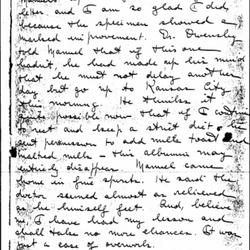 letter and I am so glad I did,
because the specimen showed a
marked improvement. Dr. Owensby
told Manuel that if this one
hadn't, he had made up his mind
that he must not delay another
day, but go up to Kansas City
this morning. He thinks it
possible now that if I continue
to rest and keep a strict diet
got permission to add milk toast and
malted milk - this albumin may
entirely disappear. Manuel came
home in fine spirits. He said the
doctor seemed almost as relieved
as he himself felt. And, believe
me, I have had my lesson and
shall take no more chances. It was
just a case of overwork.